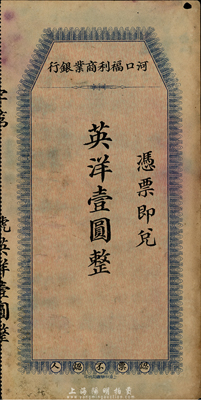 河口福利商業銀行
憑票即兌
英洋壹圓整
字第
號英洋壹圓整
認票不認人
上海陽明拍賣